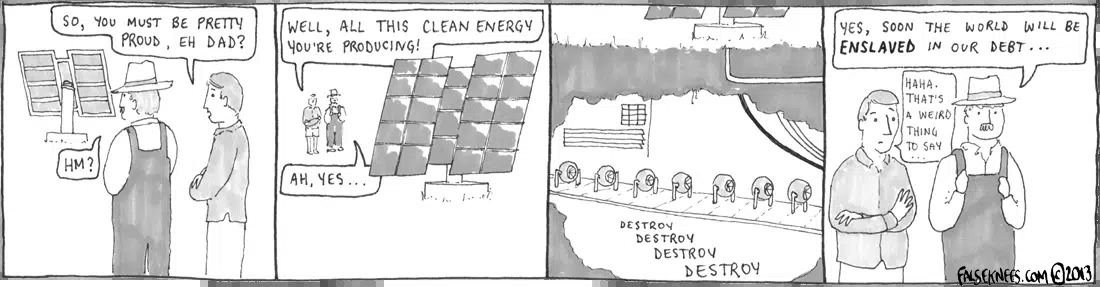 SO, YOU MUST BE PRETTY
PROUD, EH DAD?
HM?
WELL, ALL THIS CLEAN ENERGY
YOU'RE PRODUCING!
AH, YES...
DESTROY
DESTROY
DESTROY
DESTROY
YES, SOON THE WORLD WILL BE
ENSLAVED IN OUR DEBT...
HAHA.
THAT'S
A WEIRD
THING
TO SAY
...
FALSEKNEES.COM © 2013